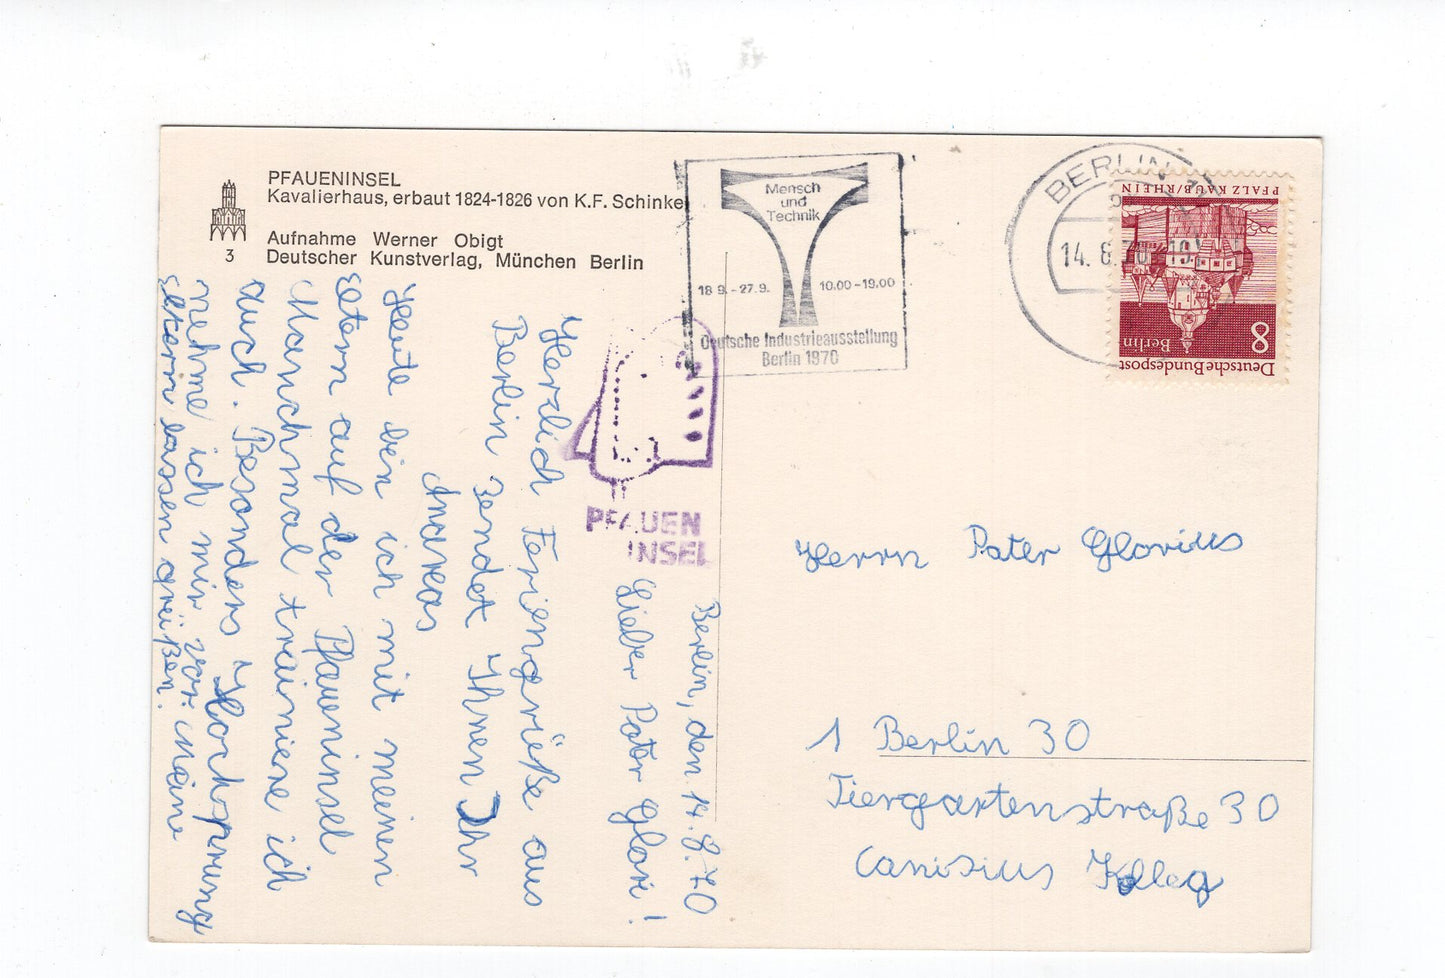 PFAUENINSEL
Kavalierhaus, erbaut 1824-1826 von K.F. Schinkel
Aufnahme Werner Obigt
Deutscher Kunstverlag, München Berlin
3
Mensch
und
Technik
18 9. - 27.9.
10.00 - 19.00
Deutsche Industrieausstellung
Berlin 1970
BERLIN
14. 8. 70
PFALZ KAUB/RHEIN
8
Deutsche Bundespost
Berlin
PFAUEN
INSEL
Berlin, den 14.8.70
Lieber Pater Glori!
Herzlich Feriengrüße aus
Berlin sendet Ihnen Ihr
Andreas
Heute bin ich mit meinen
Eltern auf der Pfaueninsel
Manchmal trainiere ich
auch. Besonders Hochsprung
nehme ich mir vor. Meine
Eltern lassen grüßen.
Herrn Pater Glorius
1 Berlin 30
Tiergartenstraße 30
Canisius Kolleg